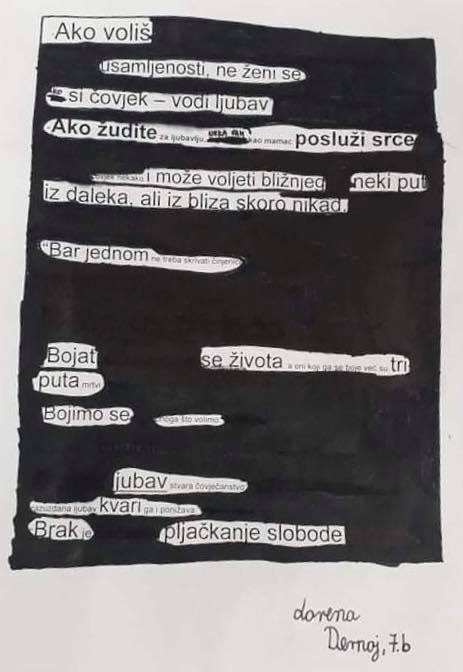 Ako voliš
usamljenosti, ne ženi se
si čovjek – vodi ljubav
Ako žudite za ljubavlju kao mamac posluži srce
čovjek nekako i može voljeti bližnjeg neki put
iz daleka, ali iz bliza skoro nikad.
"Bar jednom ne treba skrivati činjenic
Bojat se života a oni koji ga se boje već su tri
puta mrtvi
Bojimo se onoga što volimo
jubav stvara čovječanstvo
razuzdana ljubav kvari ga i ponižava
Brak je pljačkanje slobode
Lorena
Dernoj, 7.b